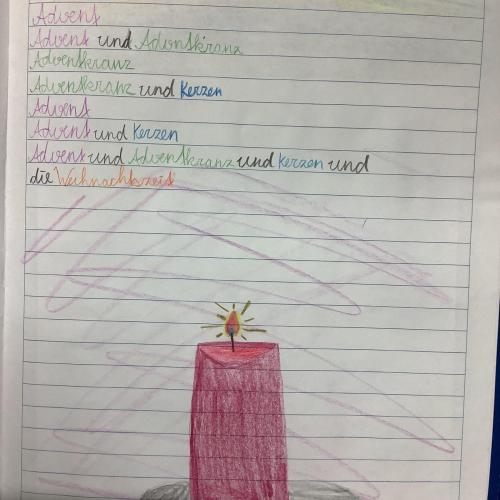 Advent
Advent und Adventskranz
Adventskranz
Adventskranz und Kerzen
Advent
Advent und Kerzen
Advent und Adventskranz und Kerzen und
die Weihnachtszeit